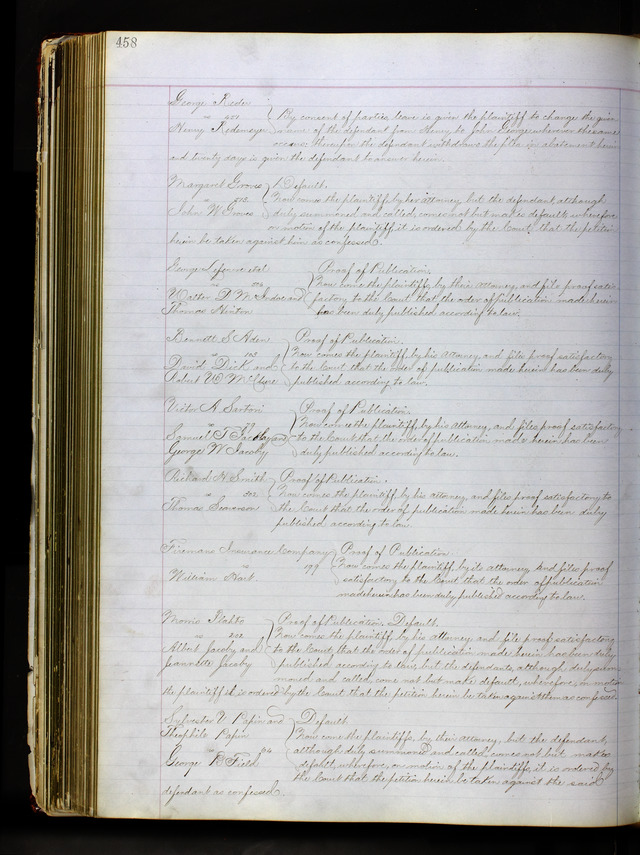 458
George Reder
vs 451 By consent of parties, leave is given the plaintiff to change the given
Henry Redemeyer name of the defendant from Henry to John George wherever the same
occurs thereupon the defendant withdraws the plea in abatement herein
and twenty days is given the defendant to answer herein.
Margaret Groves Default.
vs 512 Now comes the plaintiff, by her attorney, but the defendant, although
John W Groves duly summoned and called, comes not but makes default, wherefore
on motion of the plaintiff it is ordered by the Court, that the petition
herein be taken against him as confessed.
George et al Proof of Publication.
vs Now come the plaintiffs, by their attorney, and file proof satis-
Walter D McIndoe and factory to the Court that the order of publication made herein
Thomas Hinton has been duly published according to law.
Bennett S Aden Proof of Publication.
vs 103 Now comes the plaintiff, by his attorney, and files proof satisfactory
David Dick and to the Court, that the order of publication made herein has been duly
Robert W McClure published according to law.
Victor A Sartori Proof of Publication.
vs Now comes the plaintiff, by his attorney, and files proof satisfactory
Samuel T Jacoby and to the Court that the order of publication made herein has been
George W Jacoby duly published according to law.
Richard H Smith Proof of Publication.
vs 502 Now comes the plaintiff, by his attorney, and files proof satisfactory to
Thomas Swanson the Court that the order of publication made herein has been duly
published according to law.
Firemans Insurance Company Proof of Publication
vs 199 Now comes the plaintiff, by its attorney, and files proof
William satisfactory to the Court that the order of publication
made herein has been duly published according to law.
Morris Proof of Publication. Default.
vs 202 Now comes the plaintiff, by his attorney and file proof satisfactory
Albert Jacoby and to the Court, that the order of publication made herein has been duly
Jeannette Jacoby published according to law, but the defendants, although duly sum-
moned and called, come not but make default, wherefore, on motion
the plaintiff it is ordered by the Court that the petition herein be taken against them as confessed.
Sylvester V Papin and Default.
Theophile Papin Now come the plaintiffs, by their attorney, but the defendant,
vs 94 although duly summoned and called, comes not but makes
George B Field default, wherefore, on motion of the plaintiffs, it is ordered by
the Court that the petition herein be taken against the said
defendant as confessed.